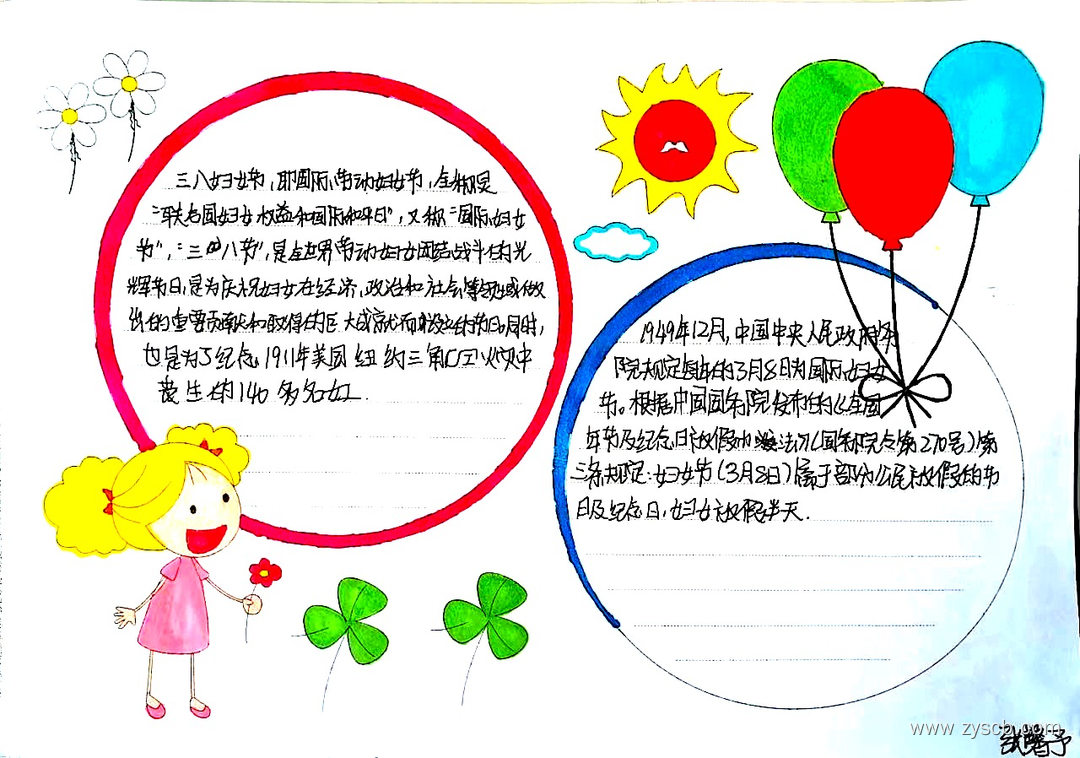 三八妇女节,即国际劳动妇女节,全称是
"联合国妇女权益和国际和平日",又称"国际妇女
节","三八节",是全世界劳动妇女团结战斗的光
辉节日,是为庆祝妇女在经济,政治和社会等领域做
出的重要贡献和取得的巨大成就而设立的节日,同时,
也是为了纪念1911年美国纽约三角工厂火灾中
丧生的140多名女工.
1949年12月,中国中央人民政府务
院规定每年的3月8日为国际妇女
节。根据中国国务院发布的《全国
年节及纪念日放假办法》(国务院令第270号)第
三条规定:妇女节(3月8日)属于部分公民放假的节
日及纪念日,妇女放假半天.
www.zyscb.com